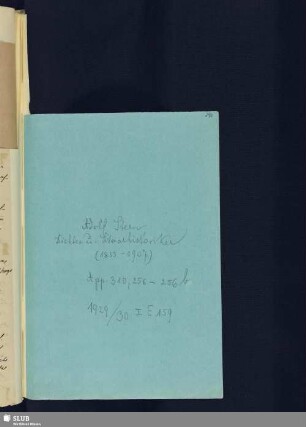 Adolf Stern
Dichter u. Literarhistoriker
(1835-1907)
App. 310, 256 - 256 b
1929/30 I E 159
SLUB
Wir führen Wissen.